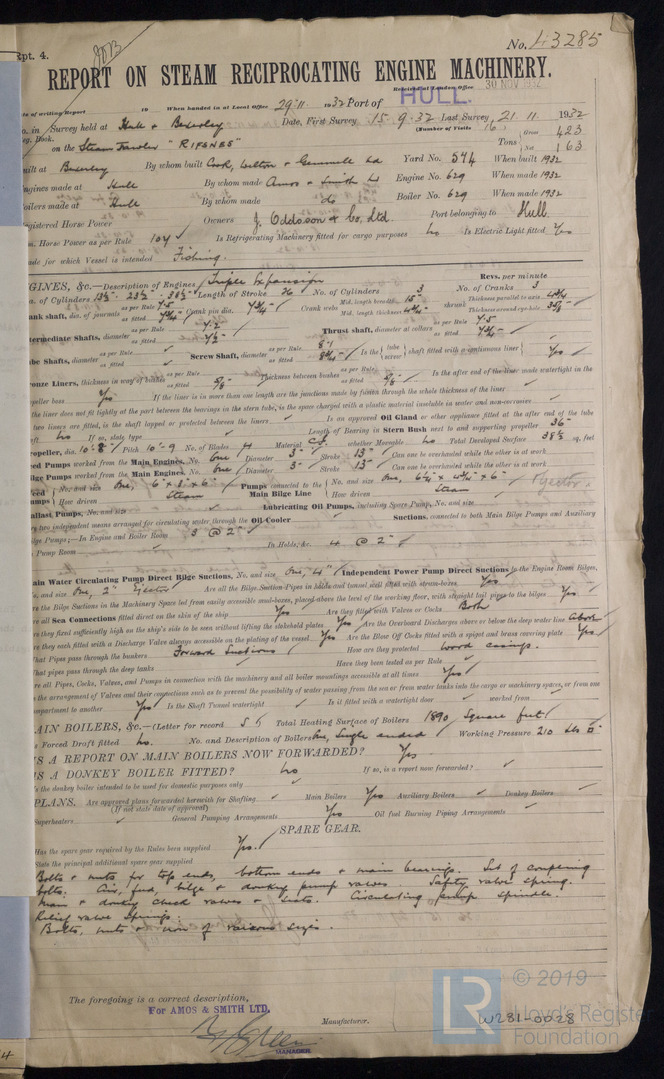 Rpt. 4.
No. 43285
REPORT ON STEAM RECIPROCATING ENGINE MACHINERY.
Received at London Office 30 NOV 1932
Date of writing Report 19 When handed in at Local Office 29.11.1932 Port of HULL.
No. in Survey held at Hull & Beverley Date, First Survey 15.9.32 Last Survey 21.11.1932
Reg. Book. (Number of Visits 16)
on the Steam Trawler "RIFSNES" Tons Gross 423 Net 163
Built at Beverley By whom built Cook, Welton & Gemmell Ld Yard No. 574 When built 1932
Engines made at Hull By whom made Amos & Smith Ld Engine No. 629 When made 1932
Boilers made at Hull By whom made do Boiler No. 629 When made 1932
Registered Horse Power Owners Port belonging to Hull
Nom. Horse Power as per Rule 104 Is Refrigerating Machinery fitted for cargo purposes no Is Electric Light fitted Yes
Trade for which Vessel is intended Fishing.
ENGINES, &c.—Description of Engines Triple Expansion Revs. per minute
No. of Cylinders 13½" 23½" 38½" Length of Stroke 26 No. of Cylinders 3 No. of Cranks 3
Crank shaft, dia. of journals as per Rule 7.5 as fitted Crank pin dia. Crank webs Mid. length breadth 15" Mid. length thickness shrunk Thickness parallel to axis Thickness around eye-hole
Intermediate Shafts, diameter as per Rule as fitted 7½" Thrust shaft, diameter at collars as per Rule 7.5 as fitted
Tube Shafts, diameter as per Rule as fitted Screw Shaft, diameter as per Rule as fitted Is the tube screw shaft fitted with a continuous liner Yes
Bronze Liners, thickness in way of bushes as per Rule as fitted 5/8" Thickness between bushes as per Rule as fitted 5/8" Is the after end of the liner made watertight in the
propeller boss Yes If the liner is in more than one length are the junctions made by fusion through the whole thickness of the liner
If the liner does not fit tightly at the part between the bearings in the stern tube, is the space charged with a plastic material insoluble in water and non-corrosive
If two liners are fitted, is the shaft lapped or protected between the liners Is an approved Oil Gland or other appliance fitted at the after end of the tube
shaft no If so, state type Length of Bearing in Stern Bush next to and supporting propeller 36"
Propeller, dia. 10'-8" Pitch 10'-9 No. of Blades 4 Material C.I. whether Moveable no Total Developed Surface 38½ sq. feet
Feed Pumps worked from the Main Engines, No. One Diameter 3" Stroke 13" Can one be overhauled while the other is at work
Bilge Pumps worked from the Main Engines, No. One Diameter 3" Stroke 13" Can one be overhauled while the other is at work
Feed Pumps No. and size One, 6" x 8" x 6" Pumps connected to the Main Bilge Line No. and size One, Ejector
How driven Steam How driven Steam
Ballast Pumps, No. and size Lubricating Oil Pumps, including Spare Pump, No. and size
Are two independent means arranged for circulating water through the Oil Cooler Suctions, connected to both Main Bilge Pumps and Auxiliary
Bilge Pumps;—In Engine and Boiler Room 3 @ 2"
In Pump Room In Holds, &c. 4 @ 2"
Main Water Circulating Pump Direct Bilge Suctions, No. and size One, 4" Independent Power Pump Direct Suctions to the Engine Room Bilges,
No. and size One, 2" Ejector Are all the Bilge Suction Pipes in holds and tunnel well fitted with strum-boxes Yes
Are the Bilge Suctions in the Machinery Space led from easily accessible mud-boxes, placed above the level of the working floor, with straight tail pipes to the bilges Yes
Are all Sea Connections fitted direct on the skin of the ship Yes Are they fitted with Valves or Cocks Both
Are they fixed sufficiently high on the ship's side to be seen without lifting the stokehold plates Yes Are the Overboard Discharges above or below the deep water line Above
Are they each fitted with a Discharge Valve always accessible on the plating of the vessel Yes Are the Blow Off Cocks fitted with a spigot and brass covering plate Yes
What Pipes pass through the bunkers Forward Suctions How are they protected Wood casings.
What pipes pass through the deep tanks Have they been tested as per Rule
Are all Pipes, Cocks, Valves, and Pumps in connection with the machinery and all boiler mountings accessible at all times Yes
Is the arrangement of Valves and their connections such as to prevent the possibility of water passing from the sea or from water tanks into the cargo or machinery spaces, or from one
compartment to another Yes Is the Shaft Tunnel watertight Is it fitted with a watertight door worked from
MAIN BOILERS, &c.—(Letter for record S) Total Heating Surface of Boilers 1890 Square feet
Is Forced Draft fitted no. No. and Description of Boilers One, Single ended Working Pressure 210 lbs
IS A REPORT ON MAIN BOILERS NOW FORWARDED? Yes.
IS A DONKEY BOILER FITTED? no If so, is a report now forwarded?
Is the donkey boiler intended to be used for domestic purposes only
PLANS. Are approved plans forwarded herewith for Shafting Main Boilers Yes Auxiliary Boilers Donkey Boilers
(If not state date of approval)
Superheaters General Pumping Arrangements Yes Oil fuel Burning Piping Arrangements
SPARE GEAR.
Has the spare gear required by the Rules been supplied Yes.
State the principal additional spare gear supplied
Bolts & nuts for top ends, bottom ends & main bearings. Set of coupling
bolts. Air, feed, bilge & donkey pump valves. Safety valve spring.
Main & donkey check valves & seats. Circulating pump spindle.
Relief valve springs.
Bolts, nuts & iron of various sizes.
The foregoing is a correct description,
For AMOS & SMITH LTD.
Manufacturer.
MANAGER.
© 2019
LR
Lloyd's Register
Foundation
W281-0028